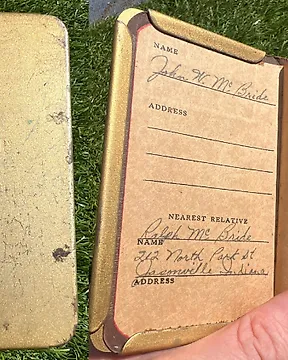 NAME
John W. Mc Bride
ADDRESS
NEAREST RELATIVE
Ralph Mc Bride
NAME
212 North Park St
Jasonville Indiana
ADDRESS